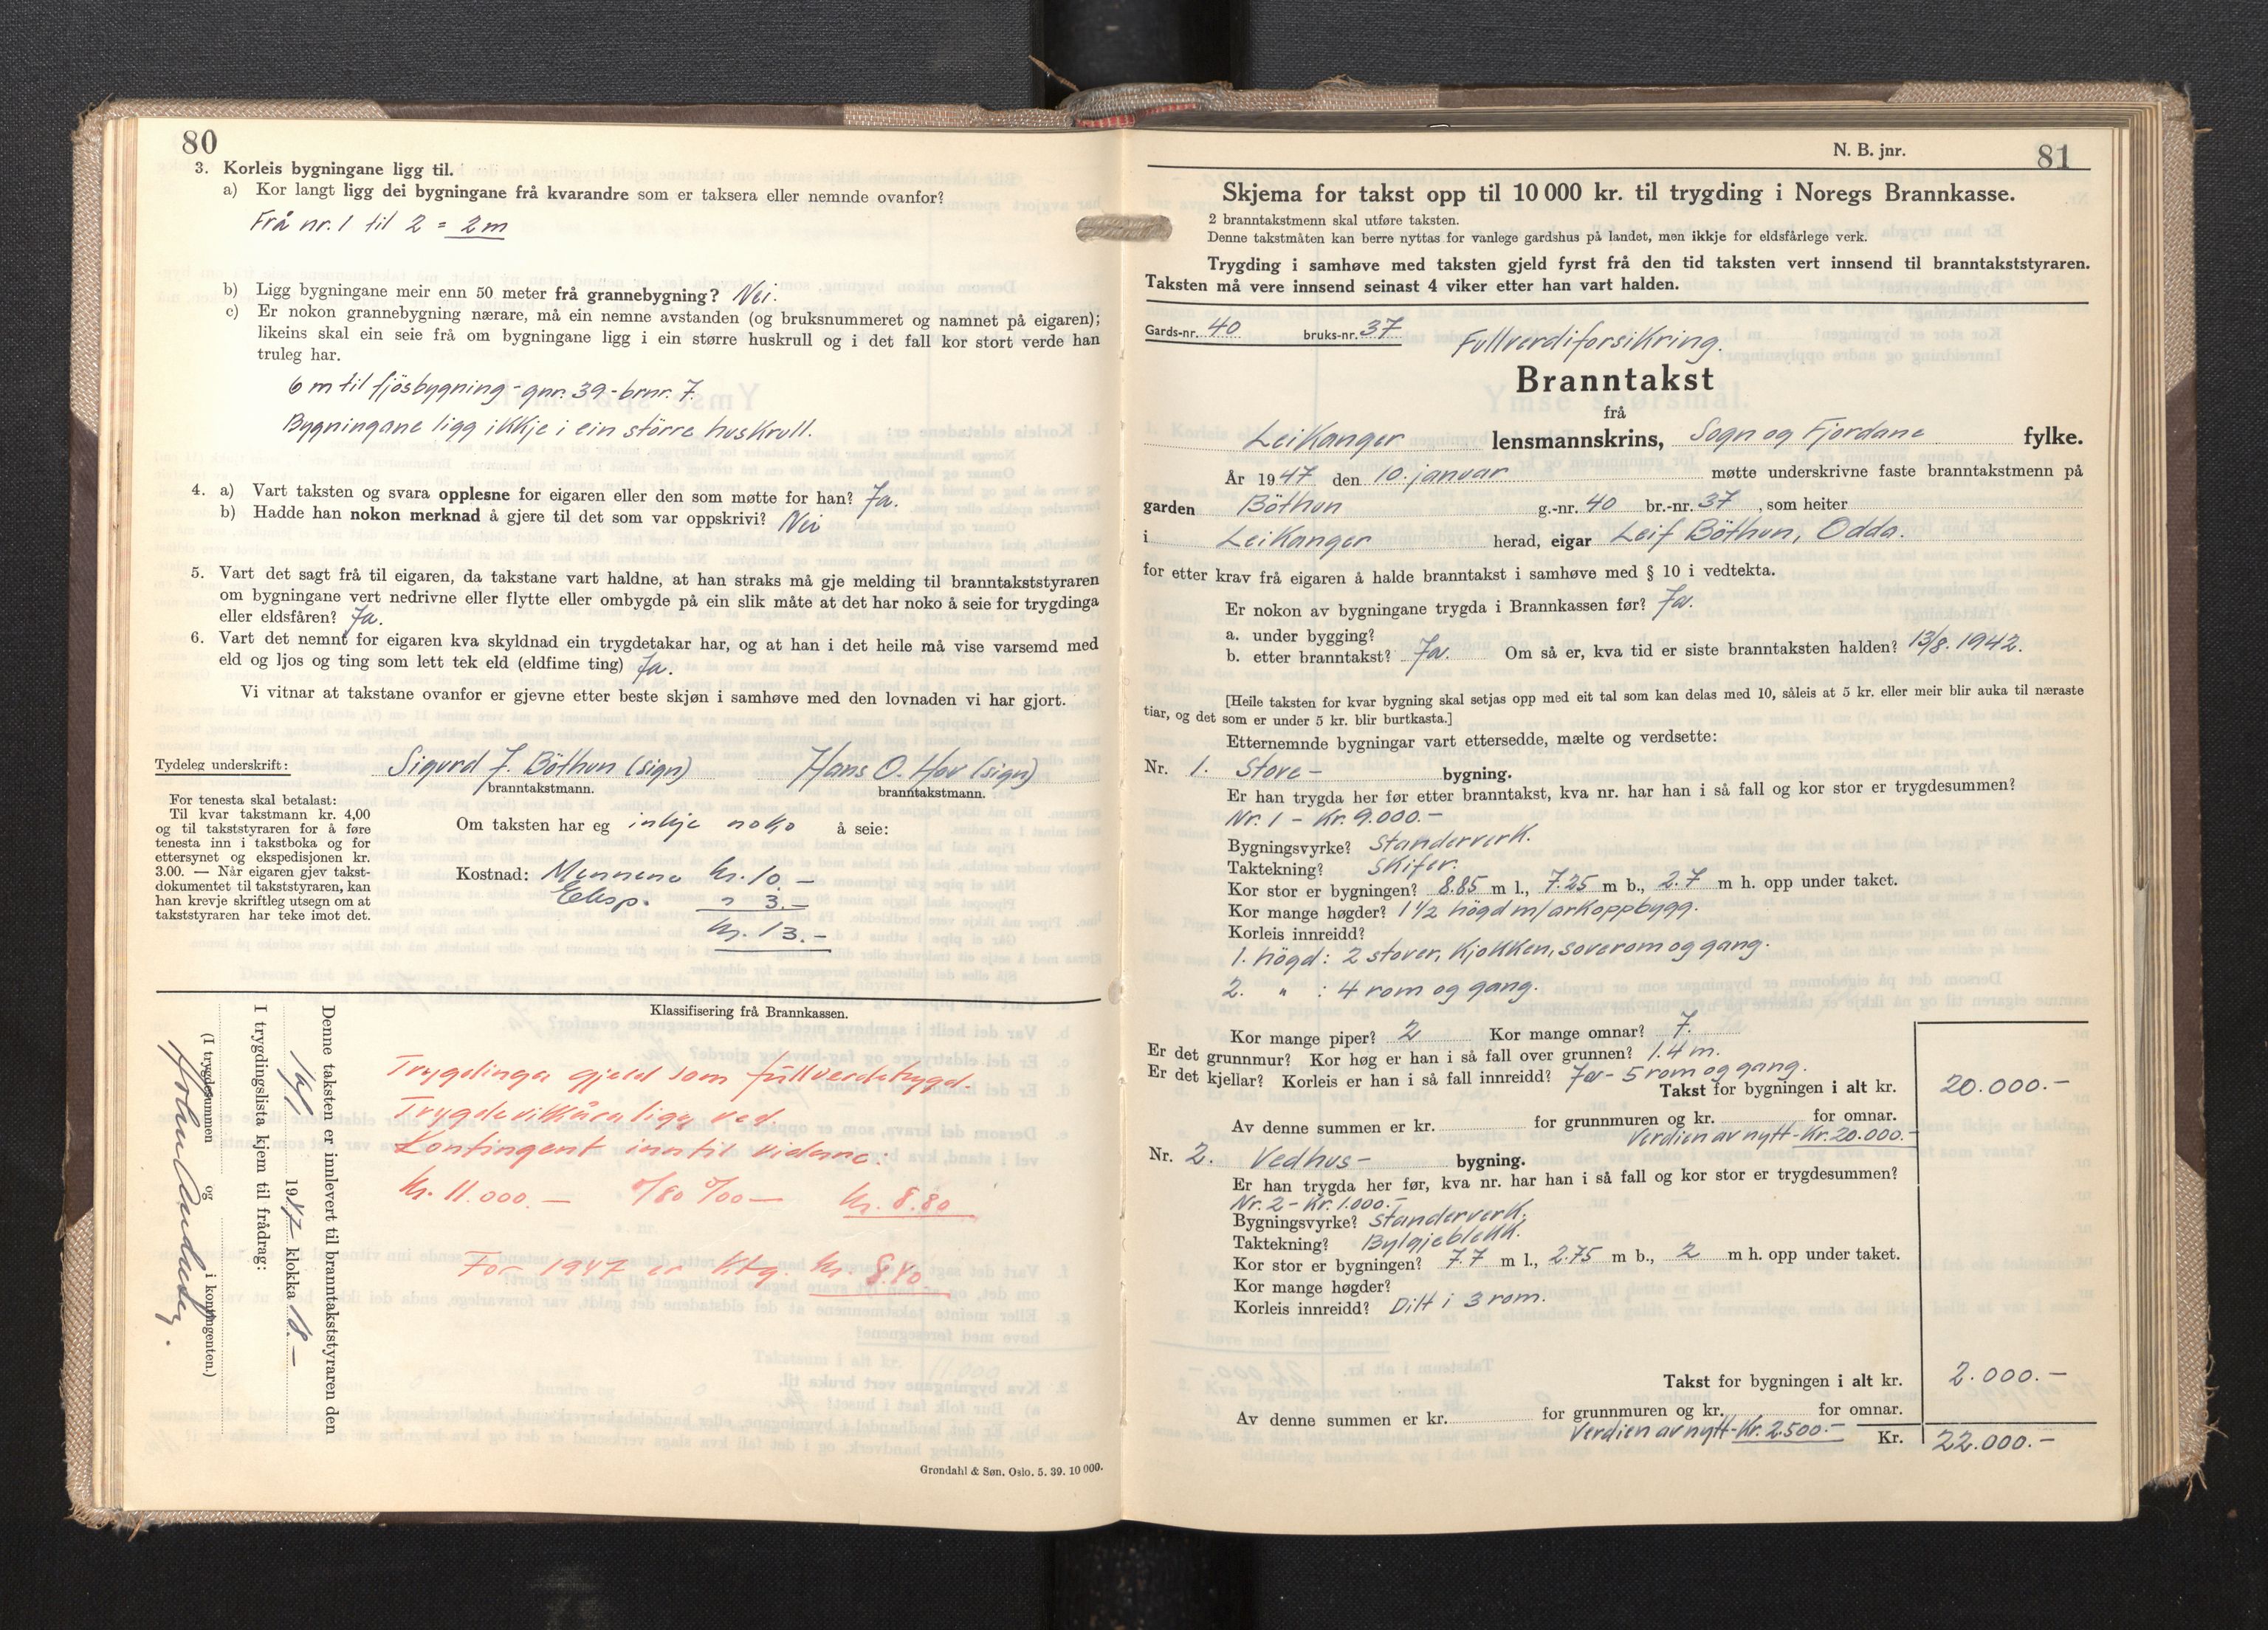 80
3. Korleis bygningane ligg til.
a) Kor langt ligg dei bygningane frå kvarandre som er taksera eller nemnde ovanfor?
Frå nr. 1 til 2 = 2 m
b) Ligg bygningane meir enn 50 meter frå grannebygning? Nei.
c) Er nokon grannebygning nærare, må ein nemne avstanden (og bruksnummeret og namnet på eigaren);
likeins skal ein seie frå om bygningane ligg i ein større huskrull og i det fall kor stort verde han
truleg har.
6 m til fjösbygning - gnr. 39 - brnr. 7.
Bygningane ligg ikkje i ein större huskrull.
4. a) Vart taksten og svara opplesne for eigaren eller den som møtte for han? Ja.
b) Hadde han nokon merknad å gjere til det som var oppskrivi? Nei
5. Vart det sagt frå til eigaren, da takstane vart haldne, at han straks må gje melding til branntakststyraren
om bygningane vert nedrivne eller flytte eller ombygde på ein slik måte at det har noko å seie for trygdinga
eller eldsfåren? Ja.
6. Vart det nemnt for eigaren kva skyldnad ein trygdetakar har, og at han i det heile må vise varsemd med
eld og ljos og ting som lett tek eld (eldfime ting) Ja.
Vi vitnar at takstane ovanfor er gjevne etter beste skjøn i samhøve med den lovnaden vi har gjort.
Tydeleg underskrift: Sigurd J. Böthun (sign) Hans O. Hov (sign)
branntakstmann. branntakstmann.
For tenesta skal betalast:
Til kvar takstmann kr. 4,00
og til takststyraren for å føre
tenesta inn i takstboka og for
ettersynet og ekspedisjonen kr.
3.00. — Når eigaren gjev takst-
dokumentet til takststyraren, kan
han krevje skriftleg utsegn om at
takststyraren har teke imot det.
Om taksten har eg inkje noko å seie:
Kostnad: Mennene kr. 10.-
Eksp. " 3.-
kr. 13.-
Klassifisering frå Brannkassen.
Trygdinga gjeld som fullverdetrygd.
Trygdevilkåra ligg ved
Kontingent inntil vidare:
kr. 11.000.— 0/80 ‰ — kr. 8.80
For 1947 er ktg. kr. 8.80.
Denne taksten er innlevert til branntakststyraren den
1947 klokka 18.-
I trygdingslista kjem til frådrag:
(I trygdesummen og i kontingenten.)
Grøndahl & Søn. Oslo. 5. 39. 10 000.
N. B. jnr. 81
Skjema for takst opp til 10 000 kr. til trygding i Noregs Brannkasse.
2 branntakstmenn skal utføre taksten.
Denne takstmåten kan berre nyttas for vanlege gardshus på landet, men ikkje for eldsfårlege verk.
Trygding i samhøve med taksten gjeld fyrst frå den tid taksten vert innsend til branntakststyraren.
Taksten må vere innsend seinast 4 viker etter han vart halden.
Gards-nr. 40 bruks-nr. 37
Fullverdiforsikring.
Branntakst
frå
Leikanger lensmannskrins, Sogn og Fjordane fylke.
År 1947 den 10. januar møtte underskrivne faste branntakstmenn på
garden Böthun g.-nr. 40 br.-nr. 37, som heiter
i Leikanger herad, eigar Leif Böthun, Odda.
for etter krav frå eigaren å halde branntakst i samhøve med § 10 i vedtekta.
Er nokon av bygningane trygda i Brannkassen før? Ja.
a. under bygging?
b. etter branntakst? Ja. Om så er, kva tid er siste branntaksten halden? 13/8. 1942.
[Heile taksten for kvar bygning skal setjas opp med eit tal som kan delas med 10, såleis at 5 kr. eller meir blir auka til næraste
tiar, og det som er under 5 kr. blir burtkasta.]
Etternemnde bygningar vart ettersedde, mælte og verdsette:
Nr. 1. Stove- bygning.
Er han trygda her før etter branntakst, kva nr. har han i så fall og kor stor er trygdesummen?
Nr. 1 - Kr. 9.000.-
Bygningsvyrke? Standerverk.
Taktekning? Skifer.
Kor stor er bygningen? 8.85 m l., 7.25 m b., 2.7 m h. opp under taket.
Kor mange høgder? 1 1/2 högd m/arkoppbygg.
Korleis innreidd?
1. högd: 2 stover, kjøkken, soverom og gang.
2. " : 4 rom og gang.
Kor mange piper? 2 Kor mange omnar? 7.
Er det grunnmur? Kor høg er han i så fall over grunnen? 1.4 m.
Er det kjellar? Korleis er han i så fall innreidd? Ja - 5 rom og gang.
Takst for bygningen i alt kr. 20.000.-
Av denne summen er kr. for grunnmuren og kr. for omnar.
Verdien av nytt - Kr. 20.000.-
Nr. 2. Vedhus- bygning.
Er han trygda her før, kva nr. har han i så fall og kor stor er trygdesummen?
Nr. 2 - Kr. 1.000.-
Bygningsvyrke? Standerverk.
Taktekning? Bylgjeblekk.
Kor stor er bygningen? 7.7 m l., 2.75 m b., 2 m h. opp under taket.
Kor mange høgder?
Korleis innreidd? Dilt i 3 rom.
Takst for bygningen i alt kr. 2.000.-
Av denne summen er kr. for grunnmuren og kr. for omnar.
Verdien av nytt - Kr. 2.500.-
Kr. 22.000.-